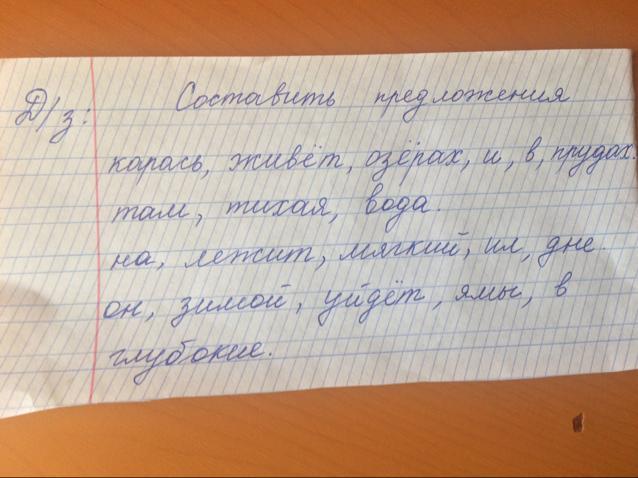 Д/з: Составить предложения
карась, живёт, озёрах, и, в, прудах.
там, тихая, вода.
на, лежит, мягкий, ил, дне.
он, зимой, уйдёт, ямы, в
глубокие.